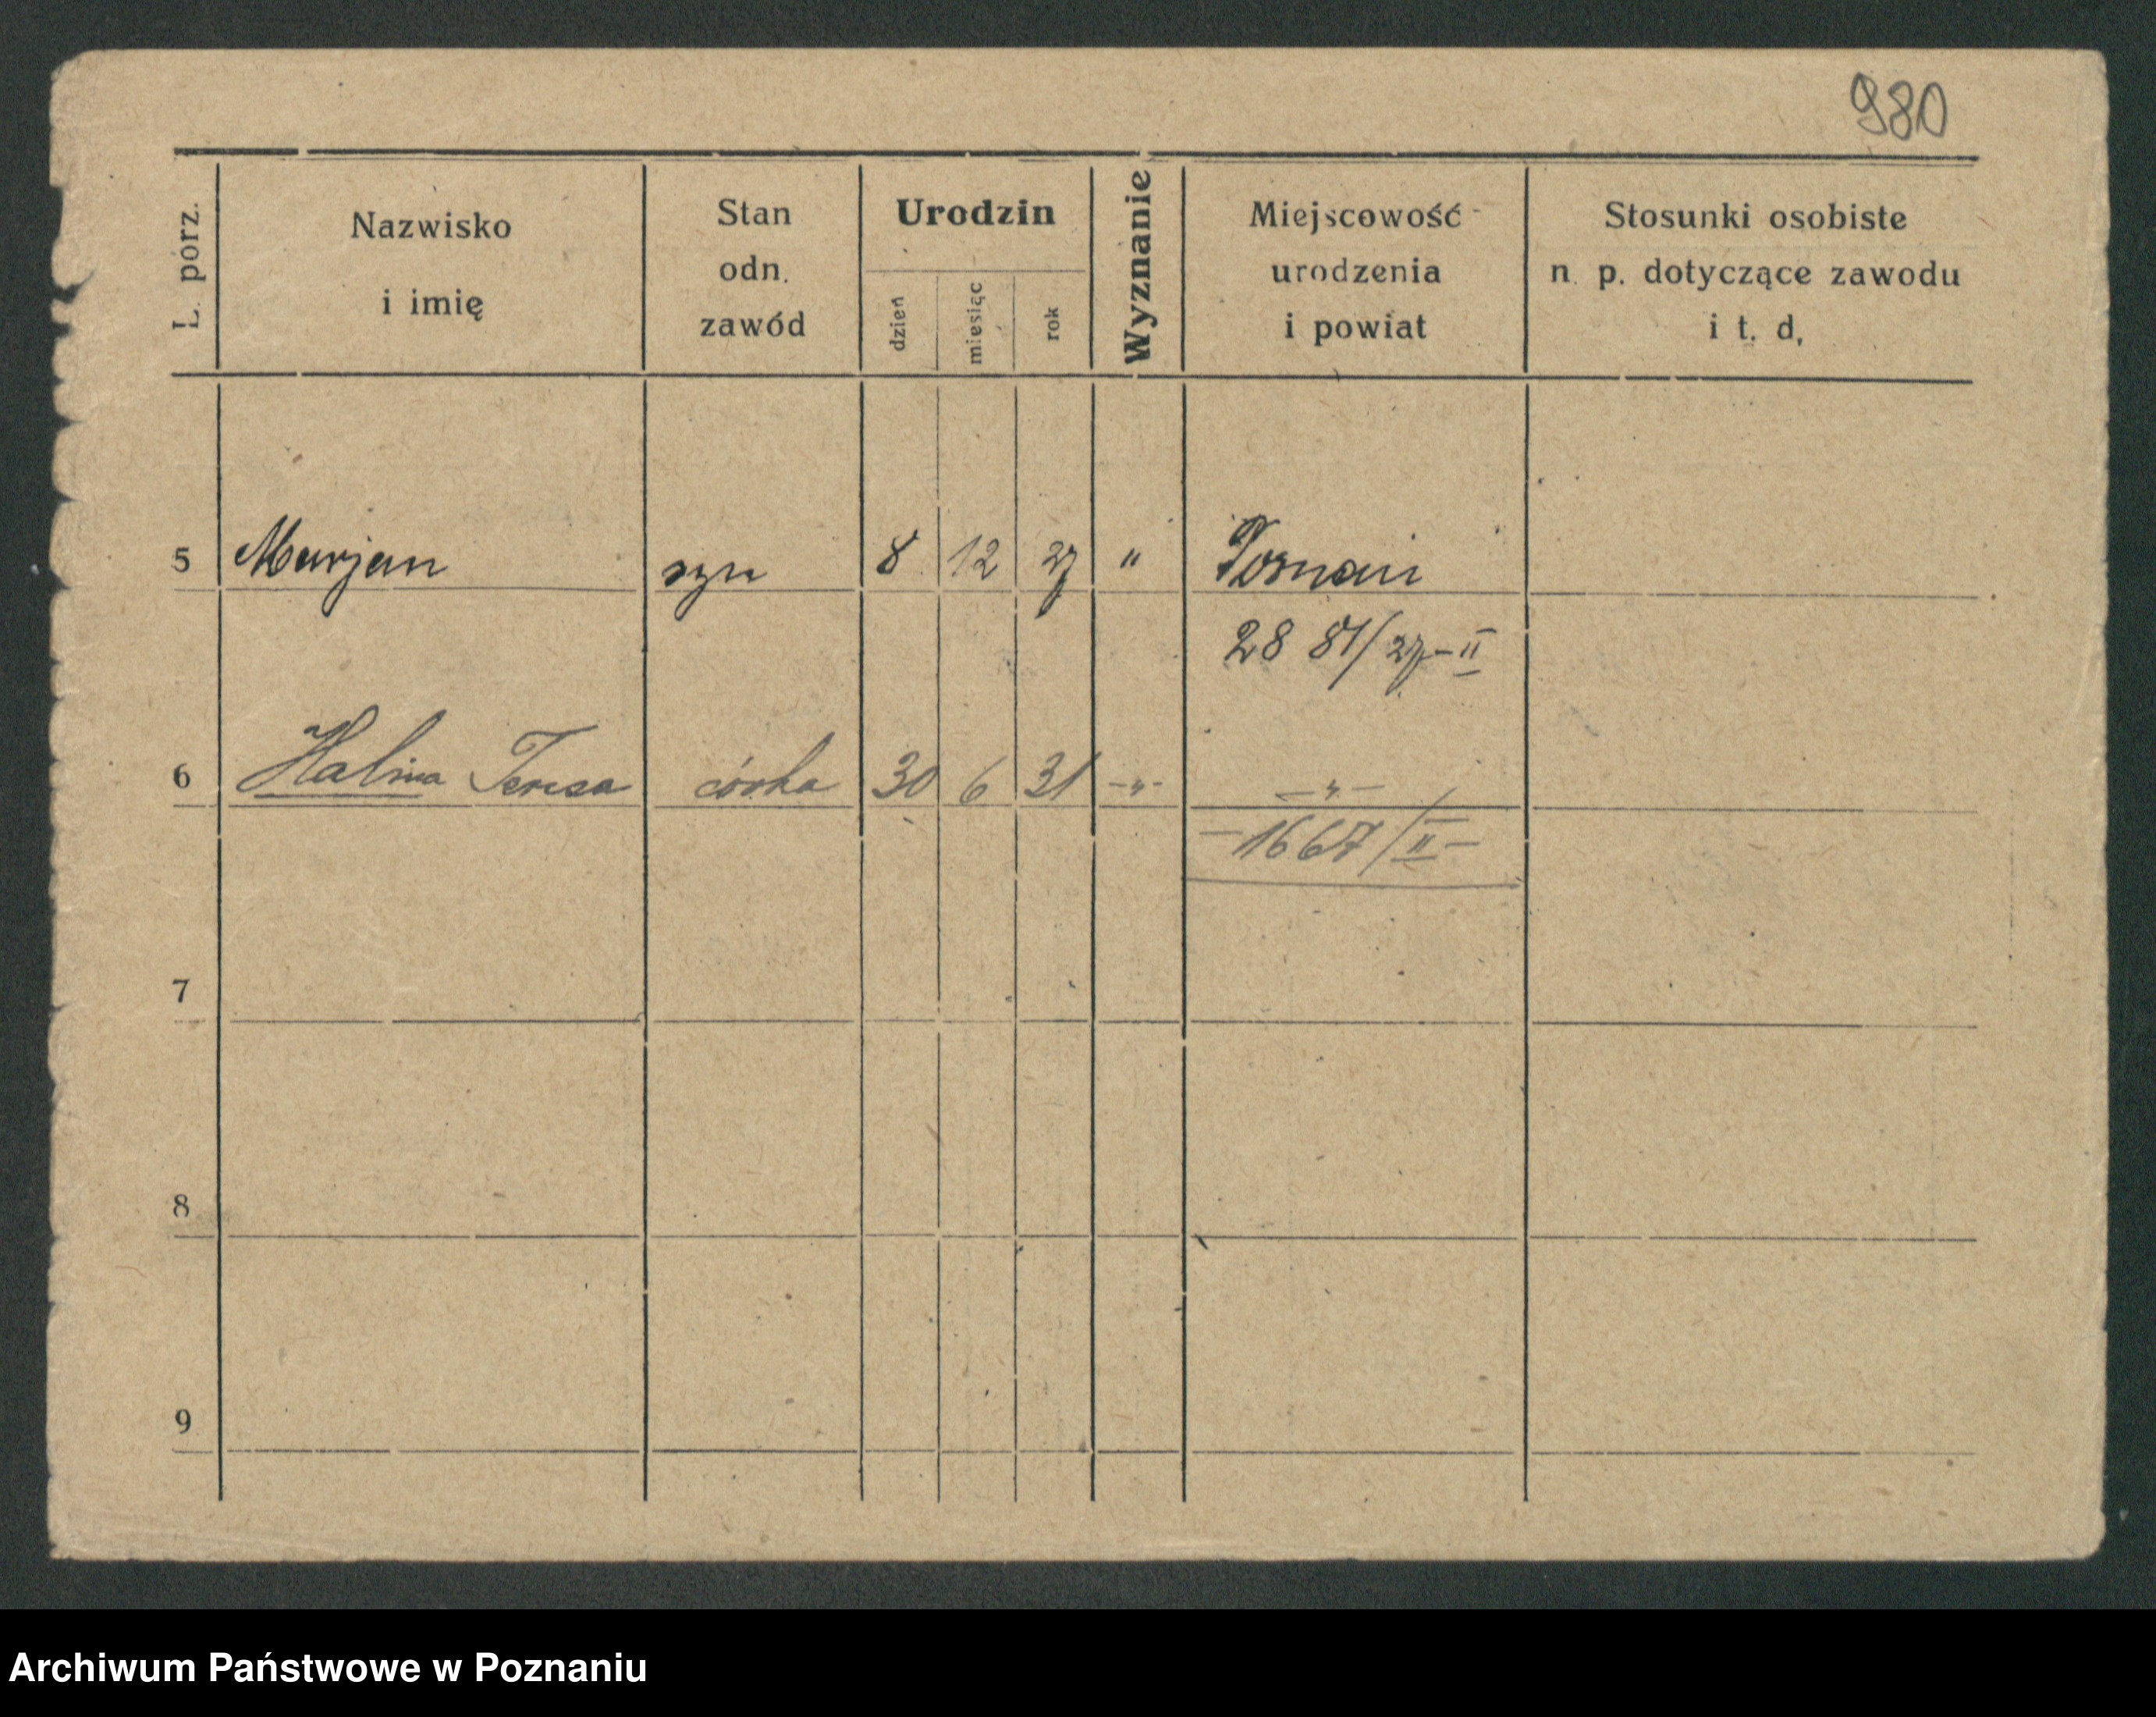 980
L. porz.
Nazwisko
i imię
Stan
odn.
zawód
Urodzin
dzień
miesiąc
rok
Wyznanie
Miejscowość
urodzenia
i powiat
Stosunki osobiste
n. p. dotyczące zawodu
i t. d.
5 Marjan syn 8 12 27 " Poznań
28 81/27-II
6 Halina Teresa córka 30 6 31 -"- -"-
-1667/II-
7
8
9
Archiwum Państwowe w Poznaniu